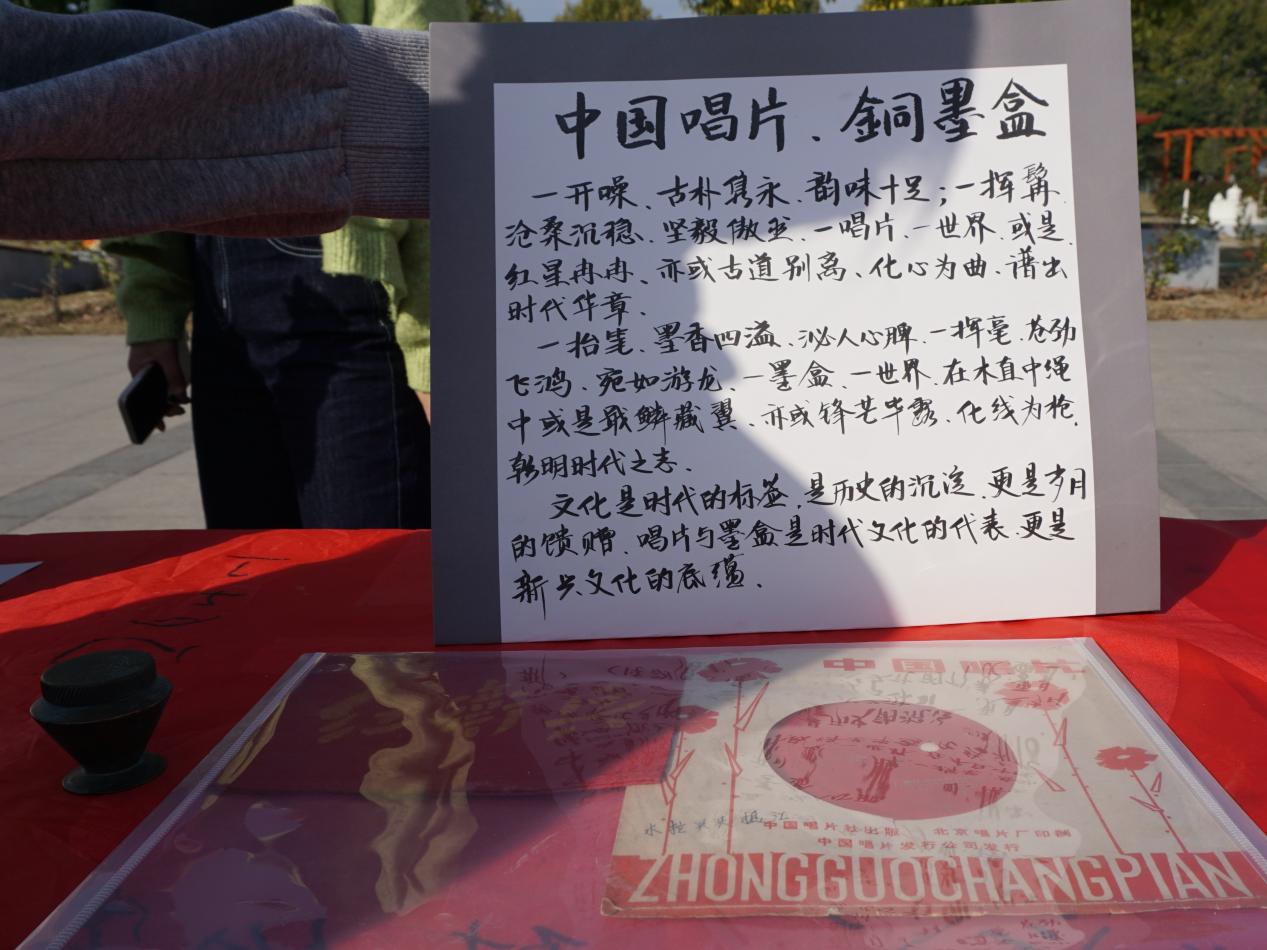 中国唱片、銅墨盒
一开嗓、古朴隽永、韵味十足；一挥髯
沧桑沉稳、坚毅傲然、一唱片、一世界、或是
红星冉冉、亦或古道别离、化心为曲、谱出
时代华章、
一抬笔、墨香四溢、沁人心脾、一挥毫、苍劲
飞鸿、宛如游龙、一墨盒、一世界、在木直中绳
中或是戢鳞藏翼、亦或锋芒毕露、化线为枪、
彰明时代之志、
文化是时代的标签、是历史的沉淀、更是岁月
的馈赠、唱片与墨盒是时代文化的代表、更是
新兴文化的底蕴、
中国唱片
中国唱片社出版 北京唱片厂印制
中国唱片发行公司发行
ZHONGGUOCHANGPIAN